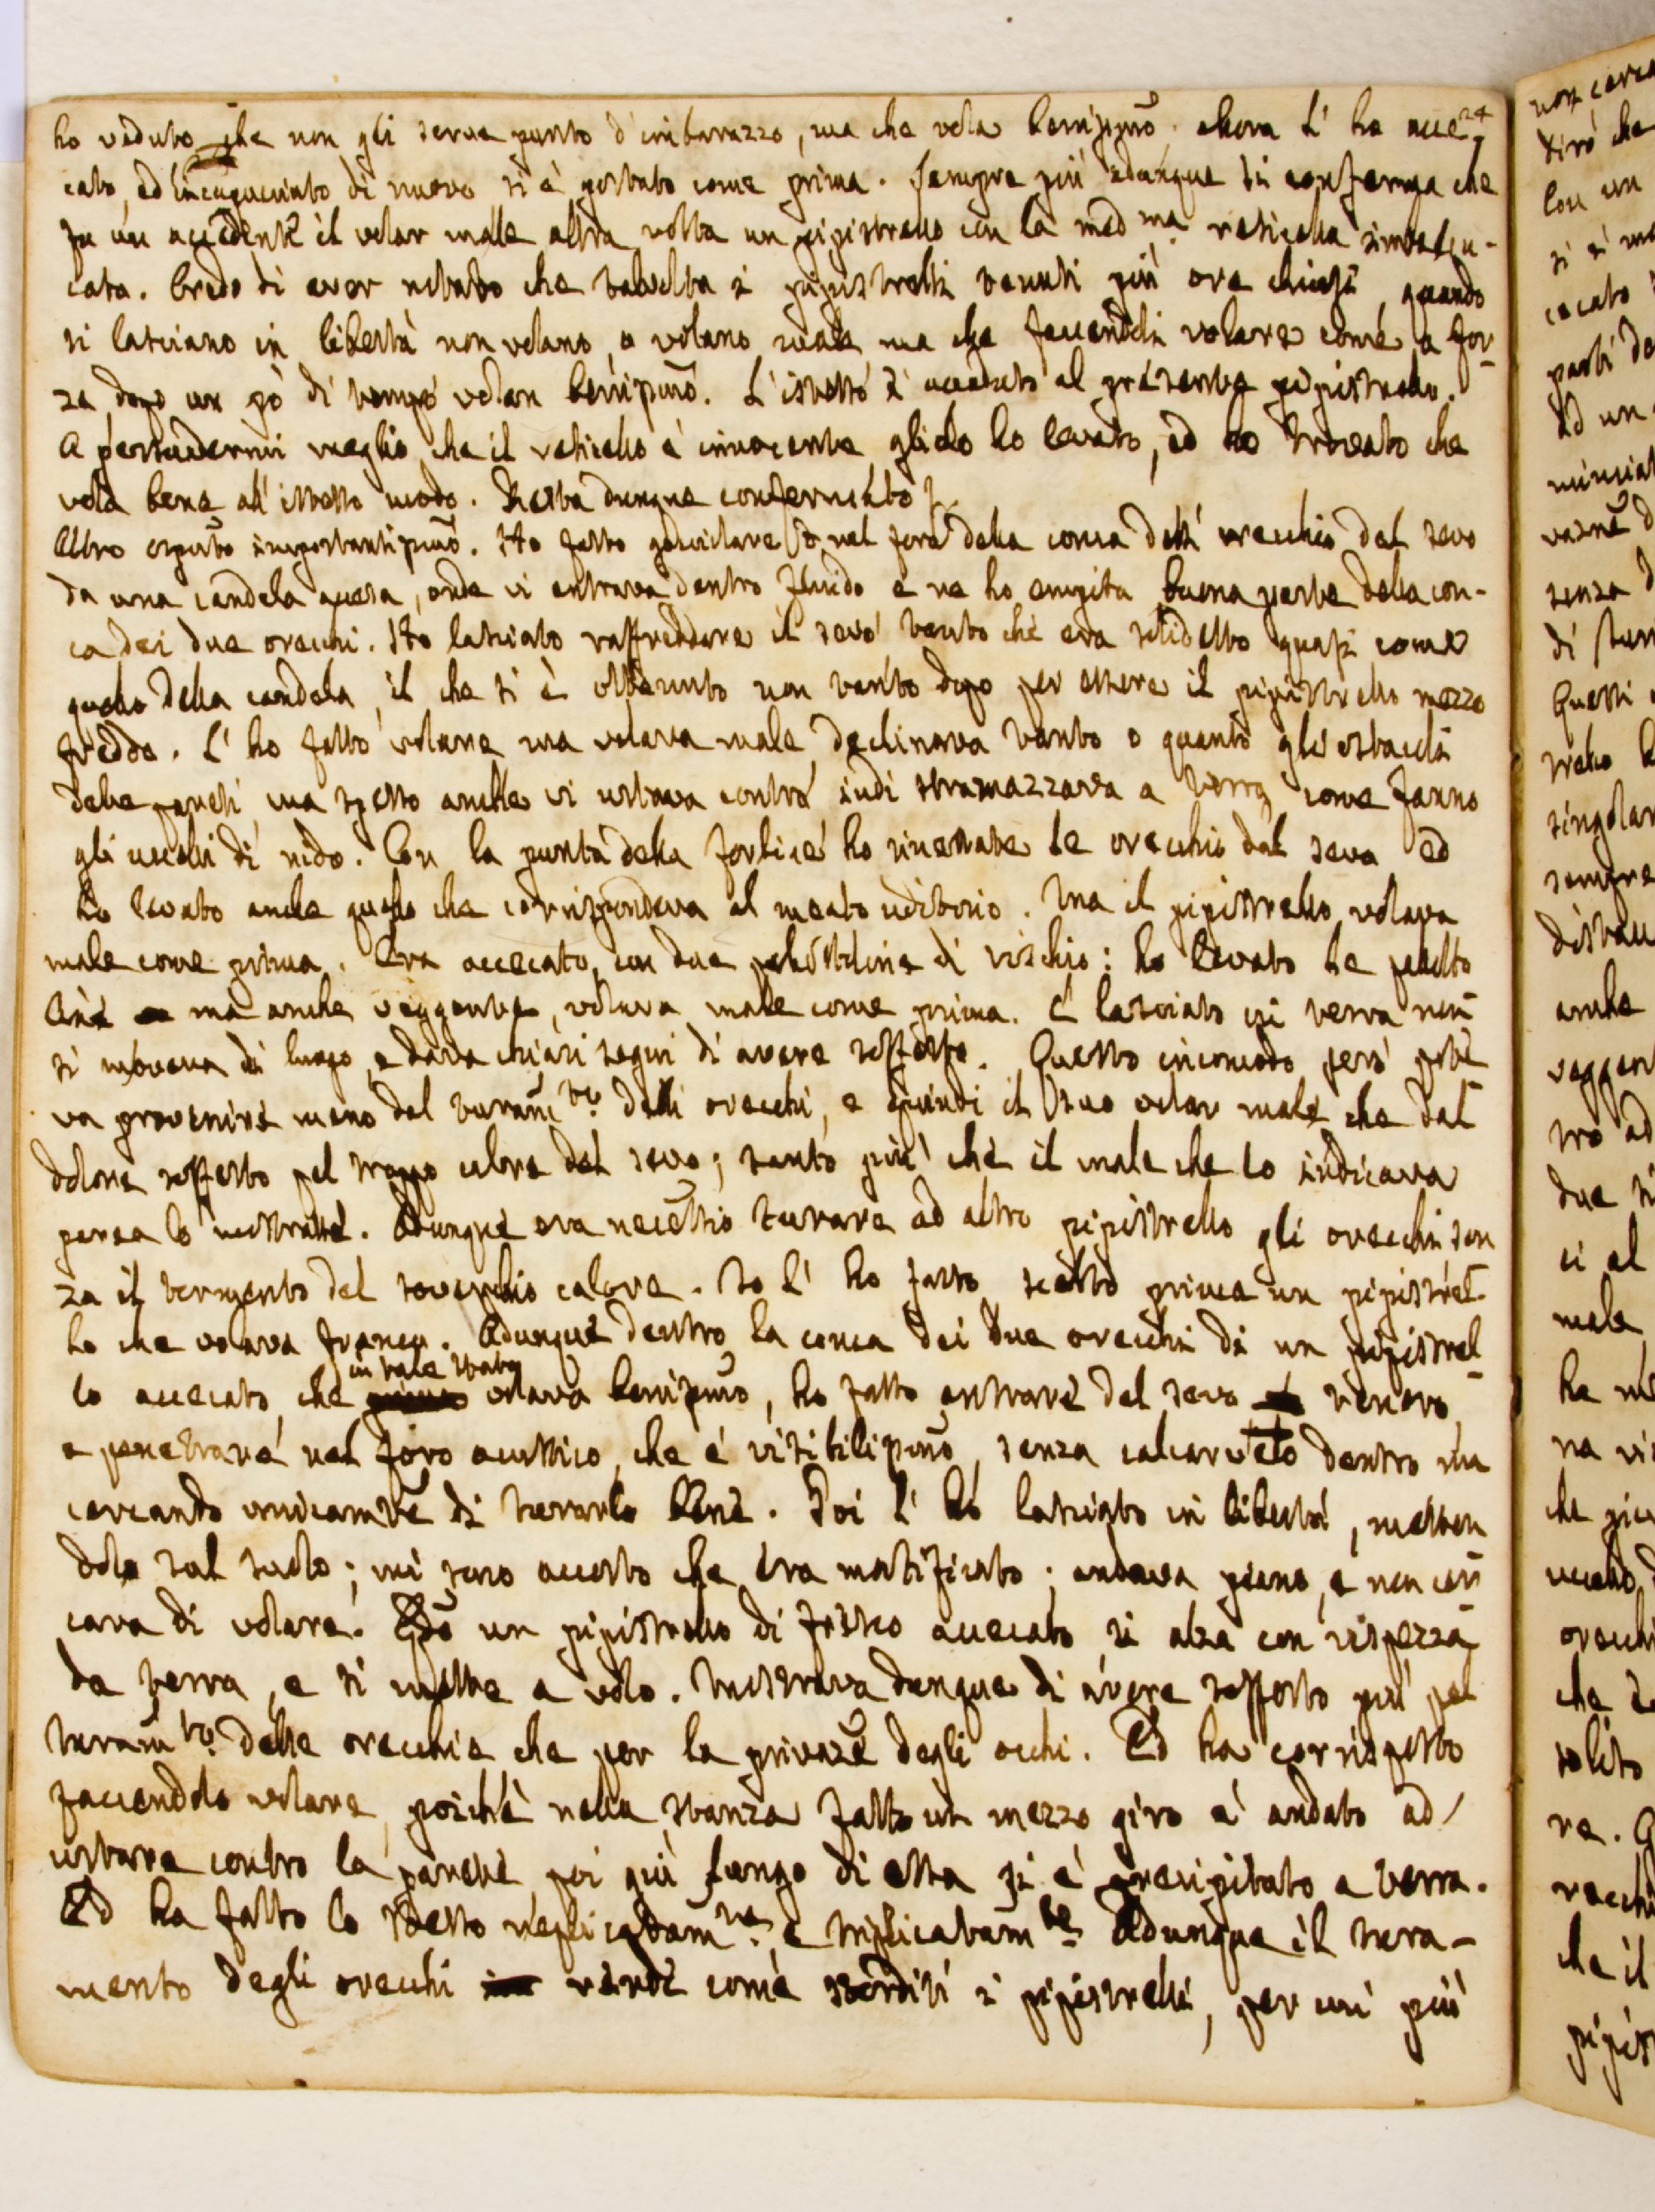 ho veduto che non gli serve punto d'imbarazzo, ma che vola benissimo. Allora l' ho acce- 24
cato, ed incapucciato di nuovo si è portato come prima. Sempre più adunque si conferma che
fu un accidente il volar male altra volta un pipistrello con la med.ma reticella
cata. Credo di aver notato che talvolta i pipistrelli tenuti più ore chiusi, quando
si lasciano in libertà non volano, o volano male, ma che facendoli volare come a for-
za, dopo un pò di tempo volan benissimo. L' istesso è accaduto al presente pipistrello.
A persuadermi meglio che il reticello è innocente, glielo ho levato, ed ho trovato che
vola bene all' istesso modo. Resta dunque confermato
Altro esperto importantissimo. Ho fatto gocciolare nel foro della conca dell' orecchio del sevo
da una candela accesa, onde vi entrava dentro fluido e ne ho empita buona parte della con-
ca dei due orecchi. Ho lasciato raffreddare il sevo tanto che era solidetto quasi come
quello della candela, il che si è ottenuto non tanto dopo per essere il pipistrello mezzo
freddo. L' ho fatto volare ma volava male, declinava tanto o quanto gli ostacoli
delle pareti, ma spesso anche vi urtava contro indi stramazzava a terra come fanno
gli uccelli di nido. Con la punta della forbice ho rinettate le orecchie dal sevo ed
ho levato anche quello che corrispondeva al meato uditorio. Ma il pipistrello volava
male come prima. Era accecato con due pallottoline di vischio: ho levato le pallotto
line ma anche veggente, volava male come prima. E lasciato in terra non
si moveva di luogo, e dava chiari segni di avere sofferto. Questo incomodo però pote
va provenire meno dal turam.to delli orecchi, e quindi il suo volar male, che dal
dolore sofferto pel troppo calore del sevo; tanto più che il male che lo indicava
parea lo mostrasse. Adunque era necessrio turare ad altro pipistrello gli orecchi sen
za il tormento del soverchio calore. Io l' ho fatto scelto prima un pipistrel-
lo che volava franco. Adunque dentro la conca dei due orecchi di un pipistrel-
lo accecato, che in tale stato volava benissimo, ho fatto entrare del sevo tenero
e penetrare nel foro acustico, che è visibilissimo, senza calcarvelo dentro ma
cercando unicamte di turarlo bene. Poi l' ho lasciato in libertà, metten
dolo sul suolo; mi sono accorto che era mortificato; andava piano, e non cer
cava di volare. Edo un pipistrello di fresco accecato, si alza con
da terra, e si mette a volo. Mostrava dunque di avere sofferto più pel
turam.to delle orecchie che per la privaze degli occhi. Ed ha corrisposto
facendolo volare, poichè nella stanza fatto un mezzo giro è andato ad
urtare contro la parete, poi giù lungo di essa si è precipitato a terra.
Ed ha fatto lo stesso replicatam.te, e triplicatam.te Adunque il tura-
mento degli orecchi rende come storditi i pipistrelli, per cui più